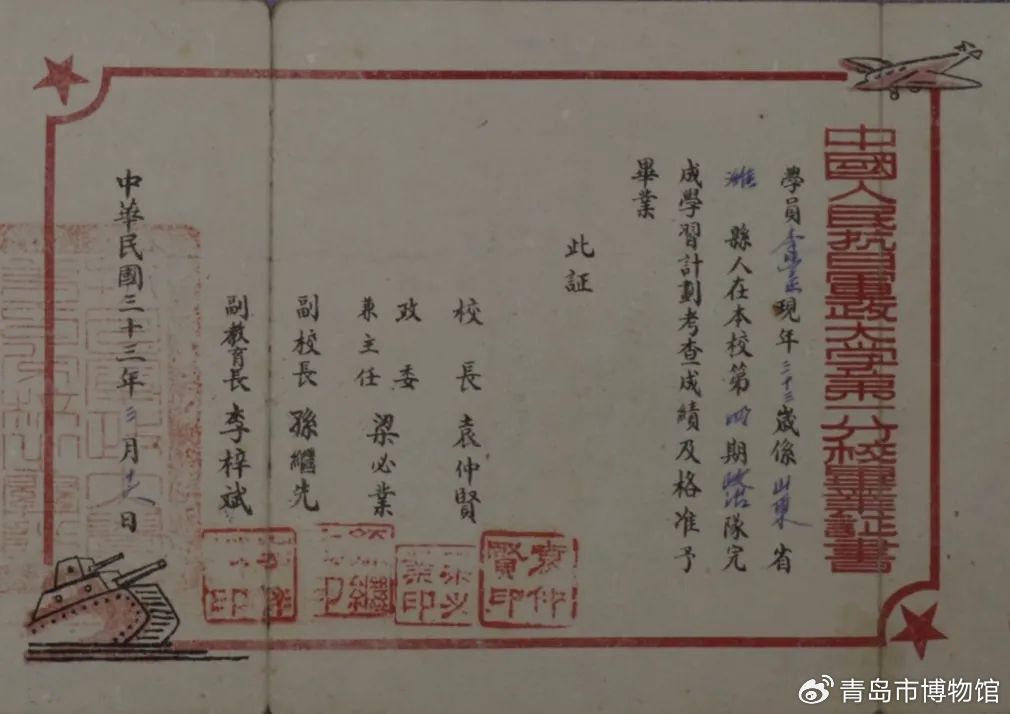 中國人民抗日軍政大学第一分校畢業証書
學員李 現年二十三歲係山東省
濰縣人在本校第四期政治隊完
成學習計劃考查成績及格准予
畢業
此証
校長袁仲賢
政委
兼主任梁必業
副校長孫繼先
副教育長李梓斌
中華民國三十三年三月十八日
袁仲賢印
梁必業印
青岛市博物馆